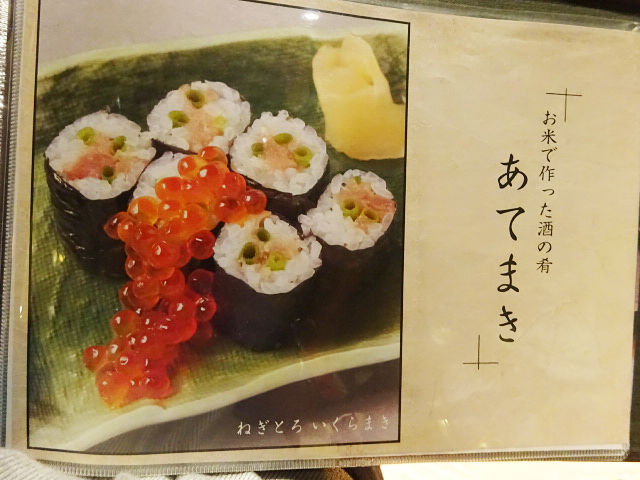 お米で作った酒の肴
あてまき
ねぎとろ いくらまき